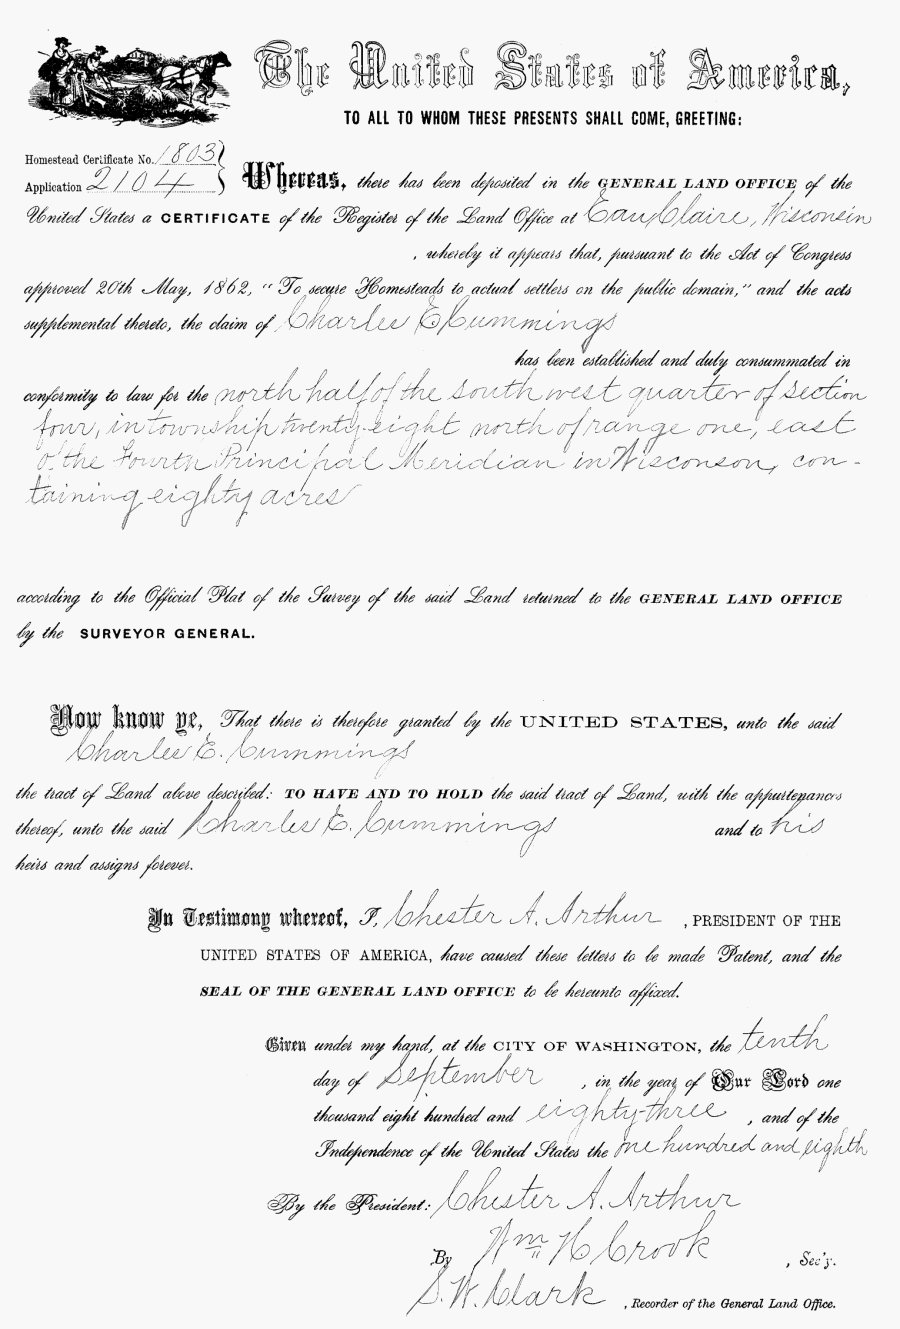 The United States of America,
TO ALL TO WHOM THESE PRESENTS SHALL COME, GREETING:
Homestead Certificate No. 1803
Application 2104
Whereas, there has been deposited in the GENERAL LAND OFFICE of the
United States a CERTIFICATE of the Register of the Land Office at Eau Claire, Wisconsin
, whereby it appears that, pursuant to the Act of Congress
approved 20th May, 1862, "To secure Homesteads to actual settlers on the public domain," and the acts
supplemental thereto, the claim of Charles E Cummings
has been established and duly consummated in
conformity to law for the north half of the south west quarter of section
four, in township twenty-eight north of range one, east
of the Fourth Principal Meridian in Wisconson, con-
taining eighty acres
according to the Official Plat of the Survey of the said Land returned to the GENERAL LAND OFFICE
by the SURVEYOR GENERAL.
Now know ye, That there is therefore granted by the UNITED STATES, unto the said
Charles E. Cummings
the tract of Land above described: TO HAVE AND TO HOLD the said tract of Land, with the appurtenances
thereof, unto the said Charles E. Cummings and to his
heirs and assigns forever.
In Testimony whereof, I, Chester A. Arthur, PRESIDENT OF THE
UNITED STATES OF AMERICA, have caused these letters to be made Patent, and the
SEAL OF THE GENERAL LAND OFFICE to be hereunto affixed.
Given under my hand, at the CITY OF WASHINGTON, the tenth
day of September, in the year of Our Lord one
thousand eight hundred and eighty-three, and of the
Independence of the United States the one hundred and eighth
By the President: Chester A. Arthur
By Wm H Crook, Sec'y.
S. W. Clark, Recorder of the General Land Office.